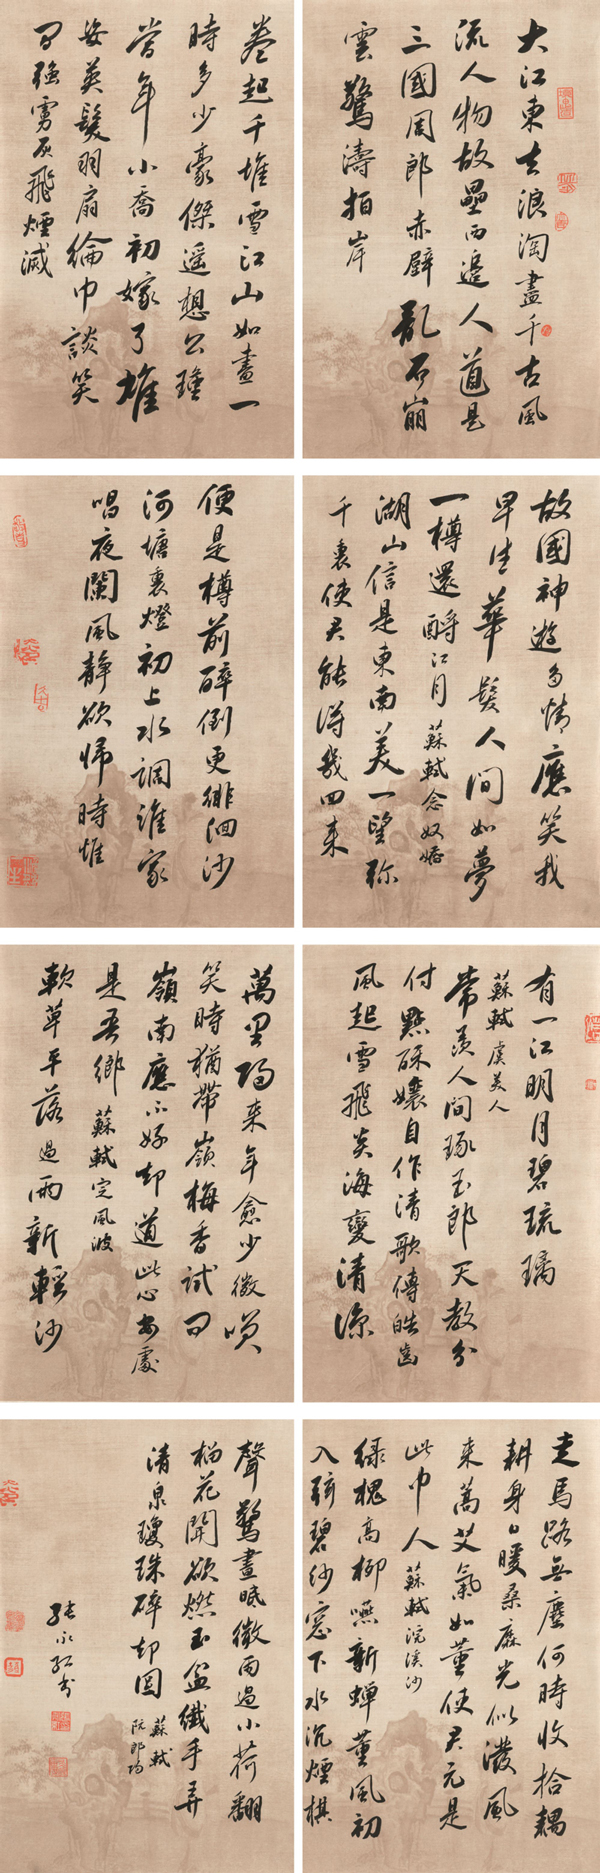 大江東去浪淘盡千古風
流人物故壘西邊人道是
三國周郎赤壁亂石崩
雲驚濤拍岸
卷起千堆雪江山如畫一
時多少豪傑遥想公瑾
當年小喬初嫁了雄
姿英髮羽扇綸巾談笑
間強虜灰飛煙滅
故國神遊多情應笑我
早生華髮人間如夢
一樽還酹江月 蘇軾念奴嬌
湖山信是東南美一望弥
千裏使君能得幾回来
便是樽前醉倒更徘徊沙
河塘裏燈初上水調誰家
唱夜闌風靜欲歸時惟
有一江明月碧琉璃
蘇軾虞美人
常羨人間琢玉郎天教分
付點酥孃自作清歌傳皓齒
風起雪飛炎海變清涼
萬里歸来年愈少微笑
笑時猶帶嶺梅香試問
嶺南應不好却道此心安處
是吾鄉 蘇軾定風波
軟草平莎過雨新輕沙
走馬路無塵何時收拾耦
耕身日暖桑麻光似潑風
来蒿艾氣如薰使君元是
此中人 蘇軾浣溪沙
緑槐高柳咽新蟬薰風初
入弦碧紗窗下水沉煙棋
聲驚晝眠微雨過小荷翻
榴花開欲燃玉盆纖手弄
清泉瓊珠碎却圓 蘇軾
阮郎歸